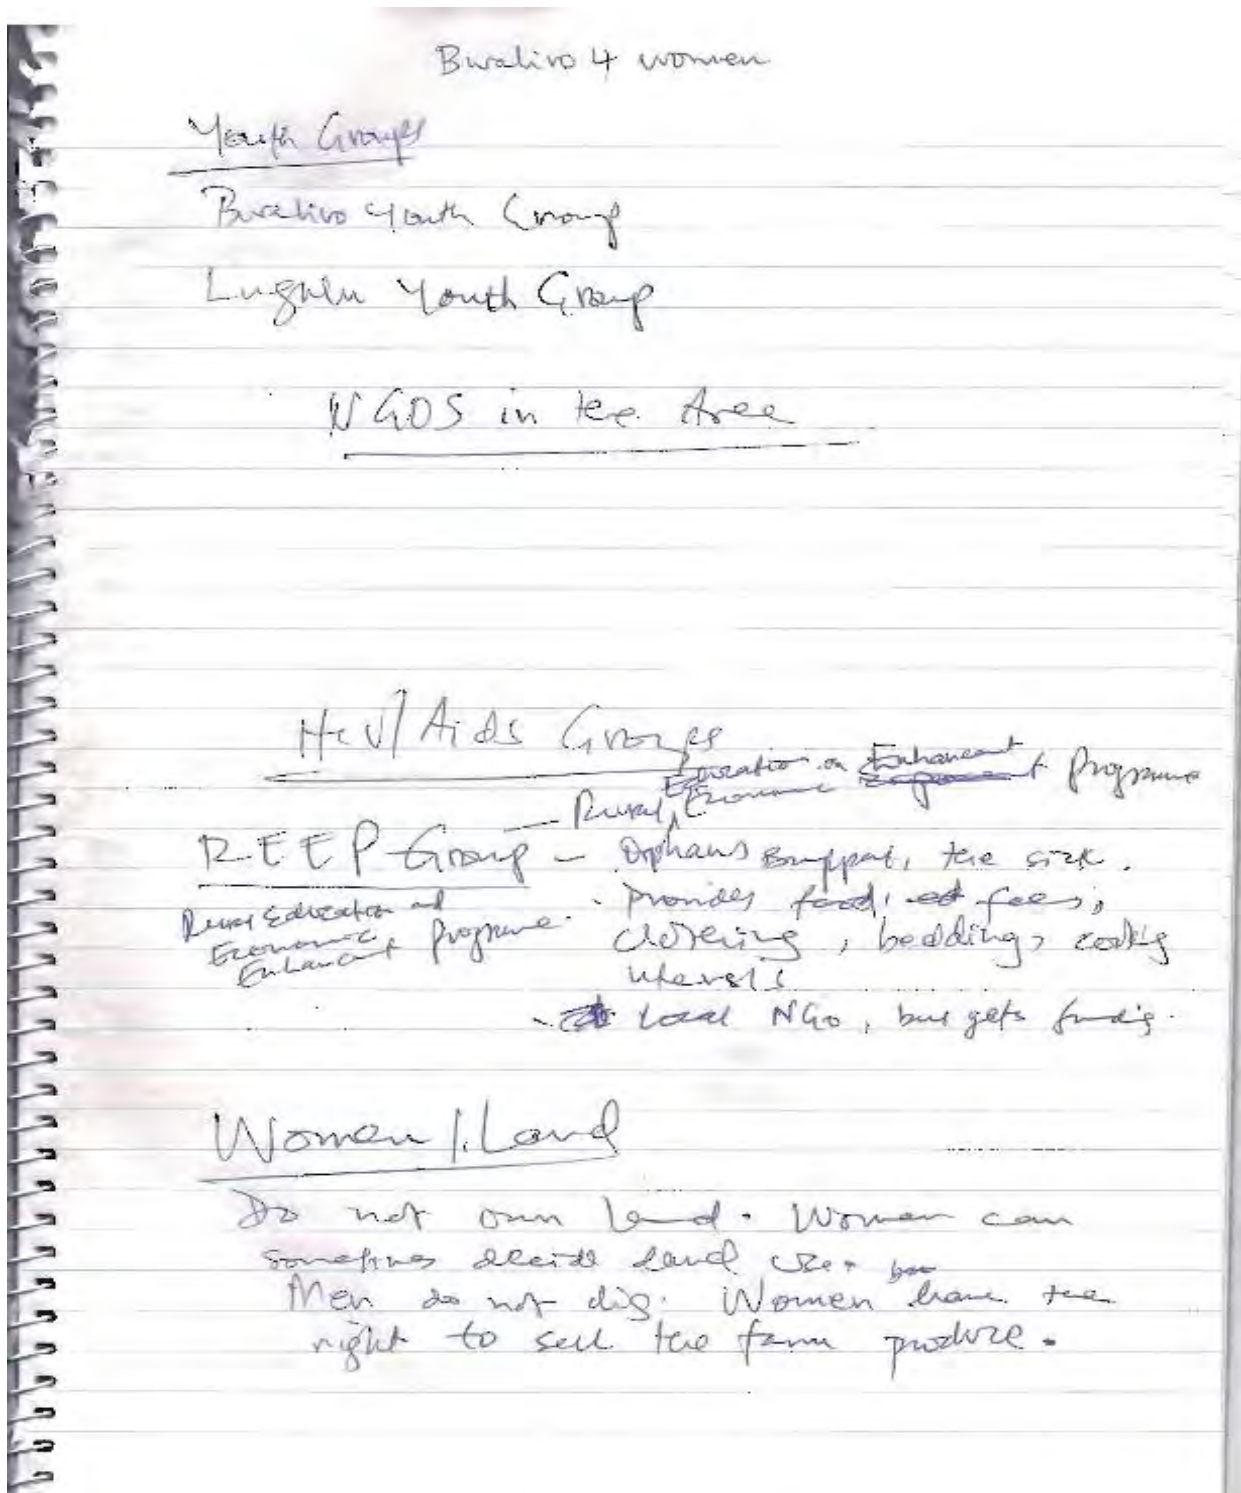 Bwaliro 4 women
Youth Groups
Bwaliro Youth Group
Lugulu Youth Group
NGOS in the Area
HIV/Aids Groups
Education Enhancement
– Rural, Economic Programme
REEP Group – Orphans support, the sick.
Rural Education and
Economic
Enhancement programme
- Provides food, fees,
clothering, bedding, cooking
utensils
- Local NGO, but gets funding.
Women / Land
Do not own land. Women can
sometimes decide land use.
Men do not dig. Women have the
right to sell the farm produce.